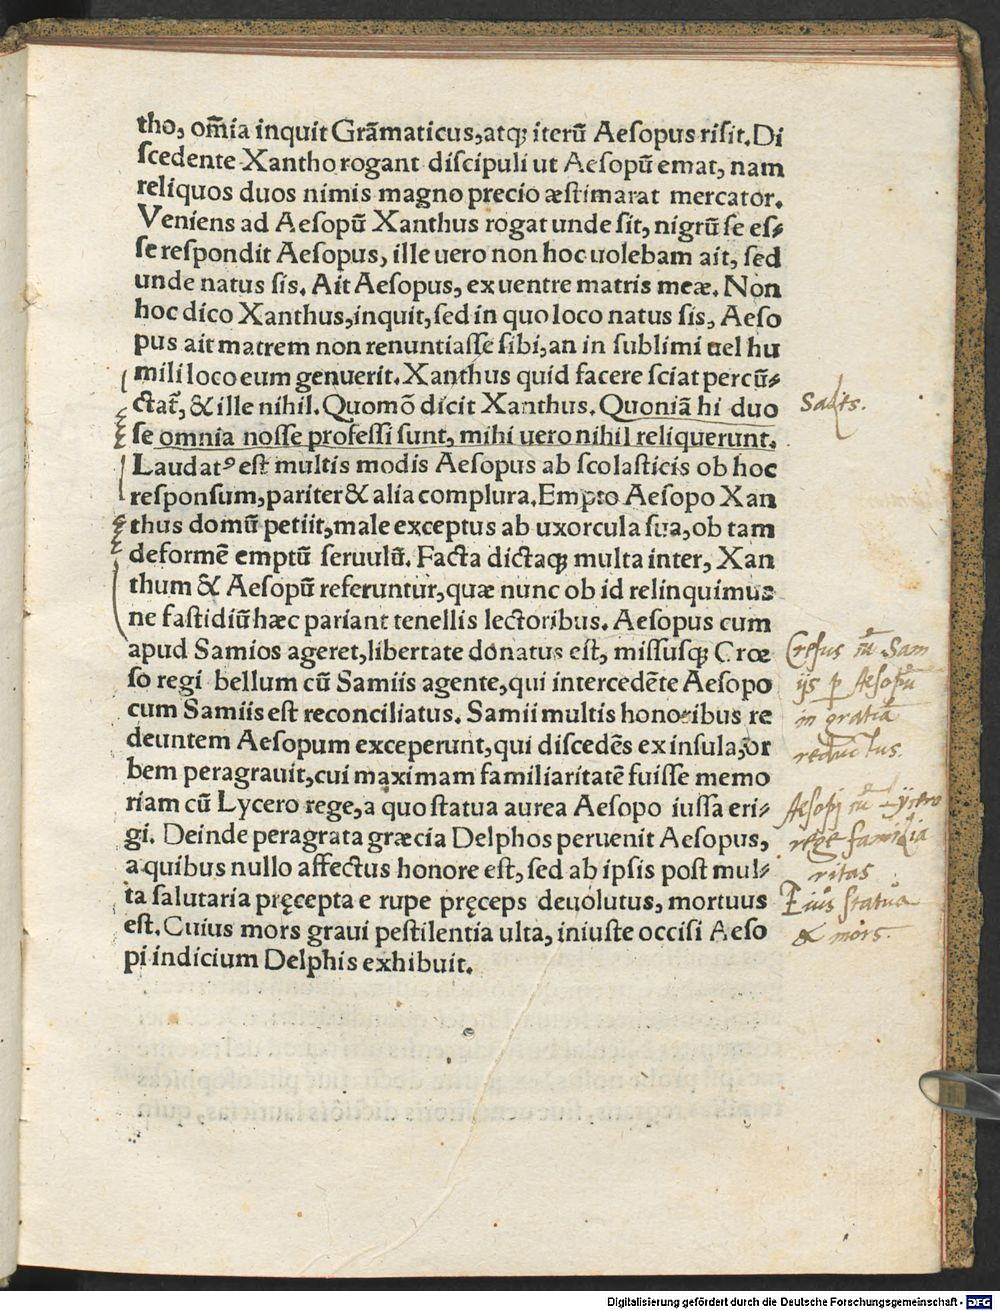 tho, om̄ia inquit Grãmaticus, atq; iterũ Aesopus risit. Di
scedente Xantho rogant discipuli ut Aesopũ emat, nam
reliquos duos nimis magno precio æstimarat mercator.
Veniens ad Aesopũ Xanthus rogat unde sit, nigrũ se es-
se respondit Aesopus, ille uero non hoc uolebam ait, sed
unde natus sis. Ait Aesopus, ex uentre matris meæ. Non
hoc dico Xanthus, inquit, sed in quo loco natus sis, Aeso
pus ait matrem non renuntiasse sibi, an in sublimi uel hu
mili loco eum genuerit. Xanthus quid facere sciat percũ-
ctat̃, & ille nihil. Quomõ dicit Xanthus. Quoniã hi duo
se omnia nosse professi sunt, mihi uero nihil reliquerunt.
Laudatꝰ est multis modis Aesopus ab scolasticis ob hoc
responsum, pariter & alia complura. Empto Aesopo Xan
thus domũ petiit, male exceptus ab uxorcula sua, ob tam
deformẽ emptũ seruulũ. Facta dictaq; multa inter, Xan
thum & Aesopũ referuntur, quæ nunc ob id relinquimus
ne fastidiũ hæc pariant tenellis lectoribus. Aesopus cum
apud Samios ageret, libertate donatus est, missusq; Crœ
so regi bellum cũ Samiis agente, qui intercedẽte Aesopo
cum Samiis est reconciliatus. Samii multis honoribus re
deuntem Aesopum exceperunt, qui discedẽs ex insula, or
bem peragrauit, cui maximam familiaritatẽ fuisse memo
riam cũ Lycero rege, a quo statua aurea Aesopo iussa eri-
gi. Deinde peragrata græcia Delphos peruenit Aesopus,
a quibus nullo affectus honore est, sed ab ipsis post mul-
ta salutaria pręcepta e rupe pręceps deuolutus, mortuus
est. Cuius mors graui pestilentia ulta, iniuste occisi Aeso
pi indicium Delphis exhibuit.
Cresus cũ Sam
ijs p Aesopũ
in gratiã
reductus.
Aesopi cũ Lycero
rege familia
ritas
Eius statua
& mors.
Digitalisierung gefördert durch die Deutsche Forschungsgemeinschaft - DFG